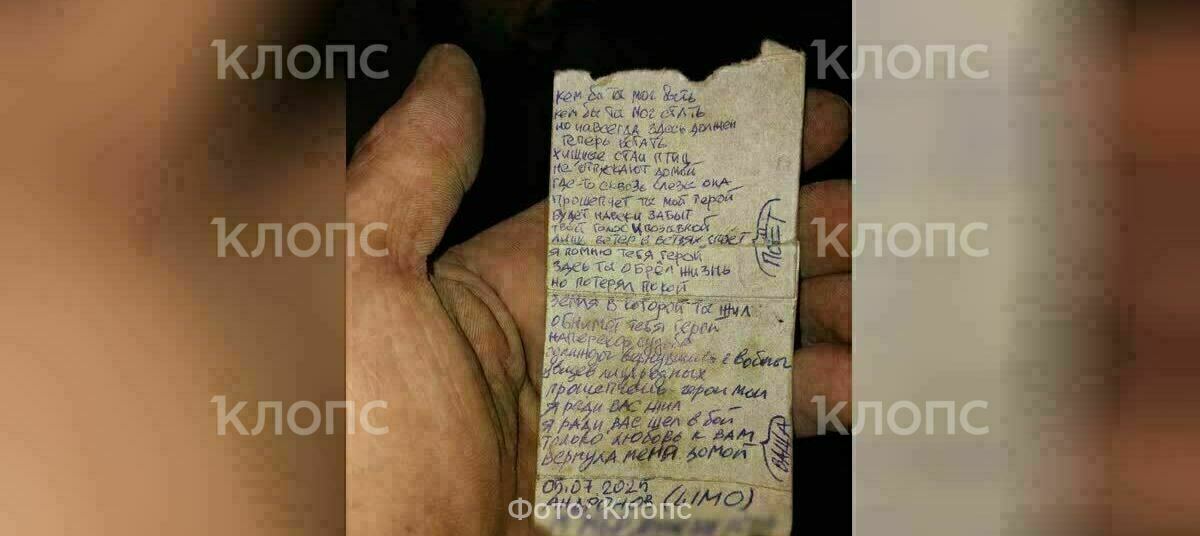 КЛОПС
КЛОПС
кем бы ты мог быть
кем бы ты мог стать
но навсегда здесь должен
теперь встать
хищные стаи птиц
не отпускают домой
где-то сквозь слезы она
прошепчет ты мой герой
будет навеки забыт
твой голос и позывной
лишь ветер в ветвях споёт
я помню тебя герой
здесь ты обрёл жизнь
но потерял покой
земля в которой ты жил
обнимет тебя герой
наперекор судьбе
вернувшись с войны
прошепчешь герои мои
я ради вас жил
я ради вас шел в бой
только любовь к вам
вернула меня домой
ПОЁТ
ВАША
05.07 2025
КЛОПС
КЛОПС
КЛОПС
КЛОПС
Фото: Клопс